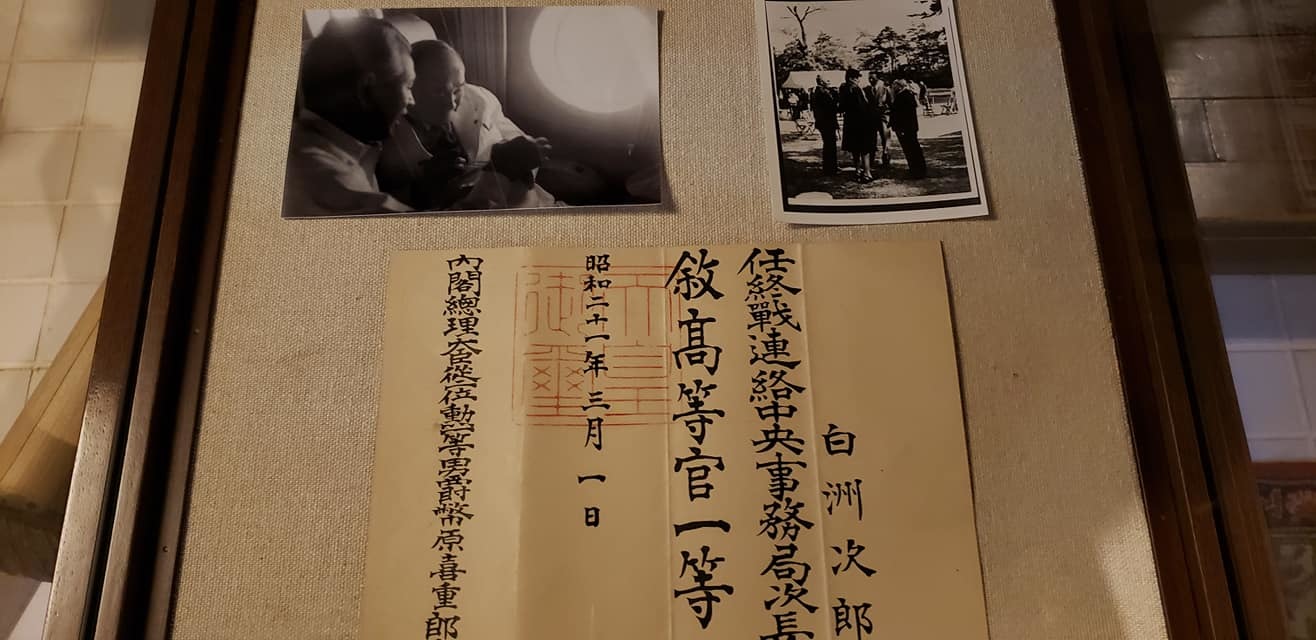 白洲次郎
任終戰連絡中央事務局次長
敘高等官一等
昭和二十一年三月一日
內閣總理大臣從一位勳一等男爵幣原喜重郎
天皇御璽